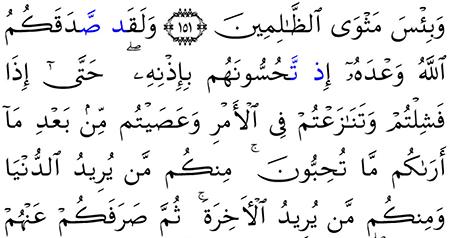 وَبِئْسَ مَثْوَى ٱلظَّٰلِمِينَ ﴿١٥١﴾ وَلَقَد صَّدَقَكُمُ
ٱللَّهُ وَعْدَهُۥٓ إِذ تَّحُسُّونَهُم بِإِذْنِهِۦۖ حَتَّىٰٓ إِذَا
فَشِلْتُمْ وَتَنَٰزَعْتُمْ فِى ٱلْأَمْرِ وَعَصَيْتُم مِّنۢ بَعْدِ مَآ
أَرَىٰكُم مَّا تُحِبُّونَۚ مِنكُم مَّن يُرِيدُ ٱلدُّنْيَا
وَمِنكُم مَّن يُرِيدُ ٱلْأَخِرَةَۚ ثُمَّ صَرَفَكُمْ عَنْهُمْ